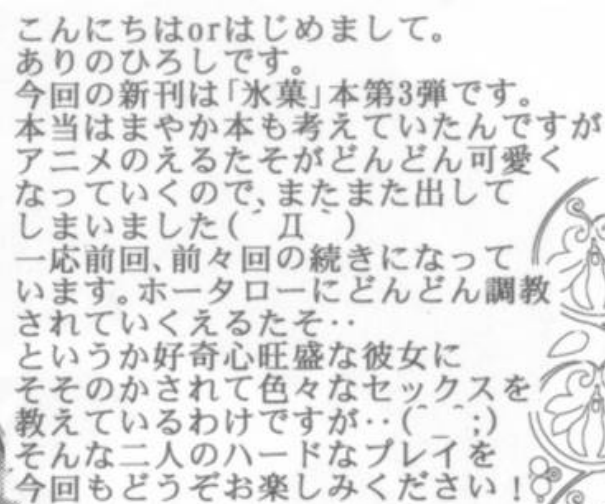 こんにちはorはじめまして。
ありのひろしです。
今回の新刊は「氷菓」本第3弾です。
本当はまやか本も考えていたんですが
アニメのえるたそがどんどん可愛く
なっていくので、またまた出して
しまいました(´Д｀)
一応前回、前々回の続きになって
います。ホータローにどんどん調教
されていくえるたそ‥
というか好奇心旺盛な彼女に
そそのかされて色々なセックスを
教えているわけですが‥(^_^;)
そんな二人のハードなプレイを
今回もどうぞお楽しみください！